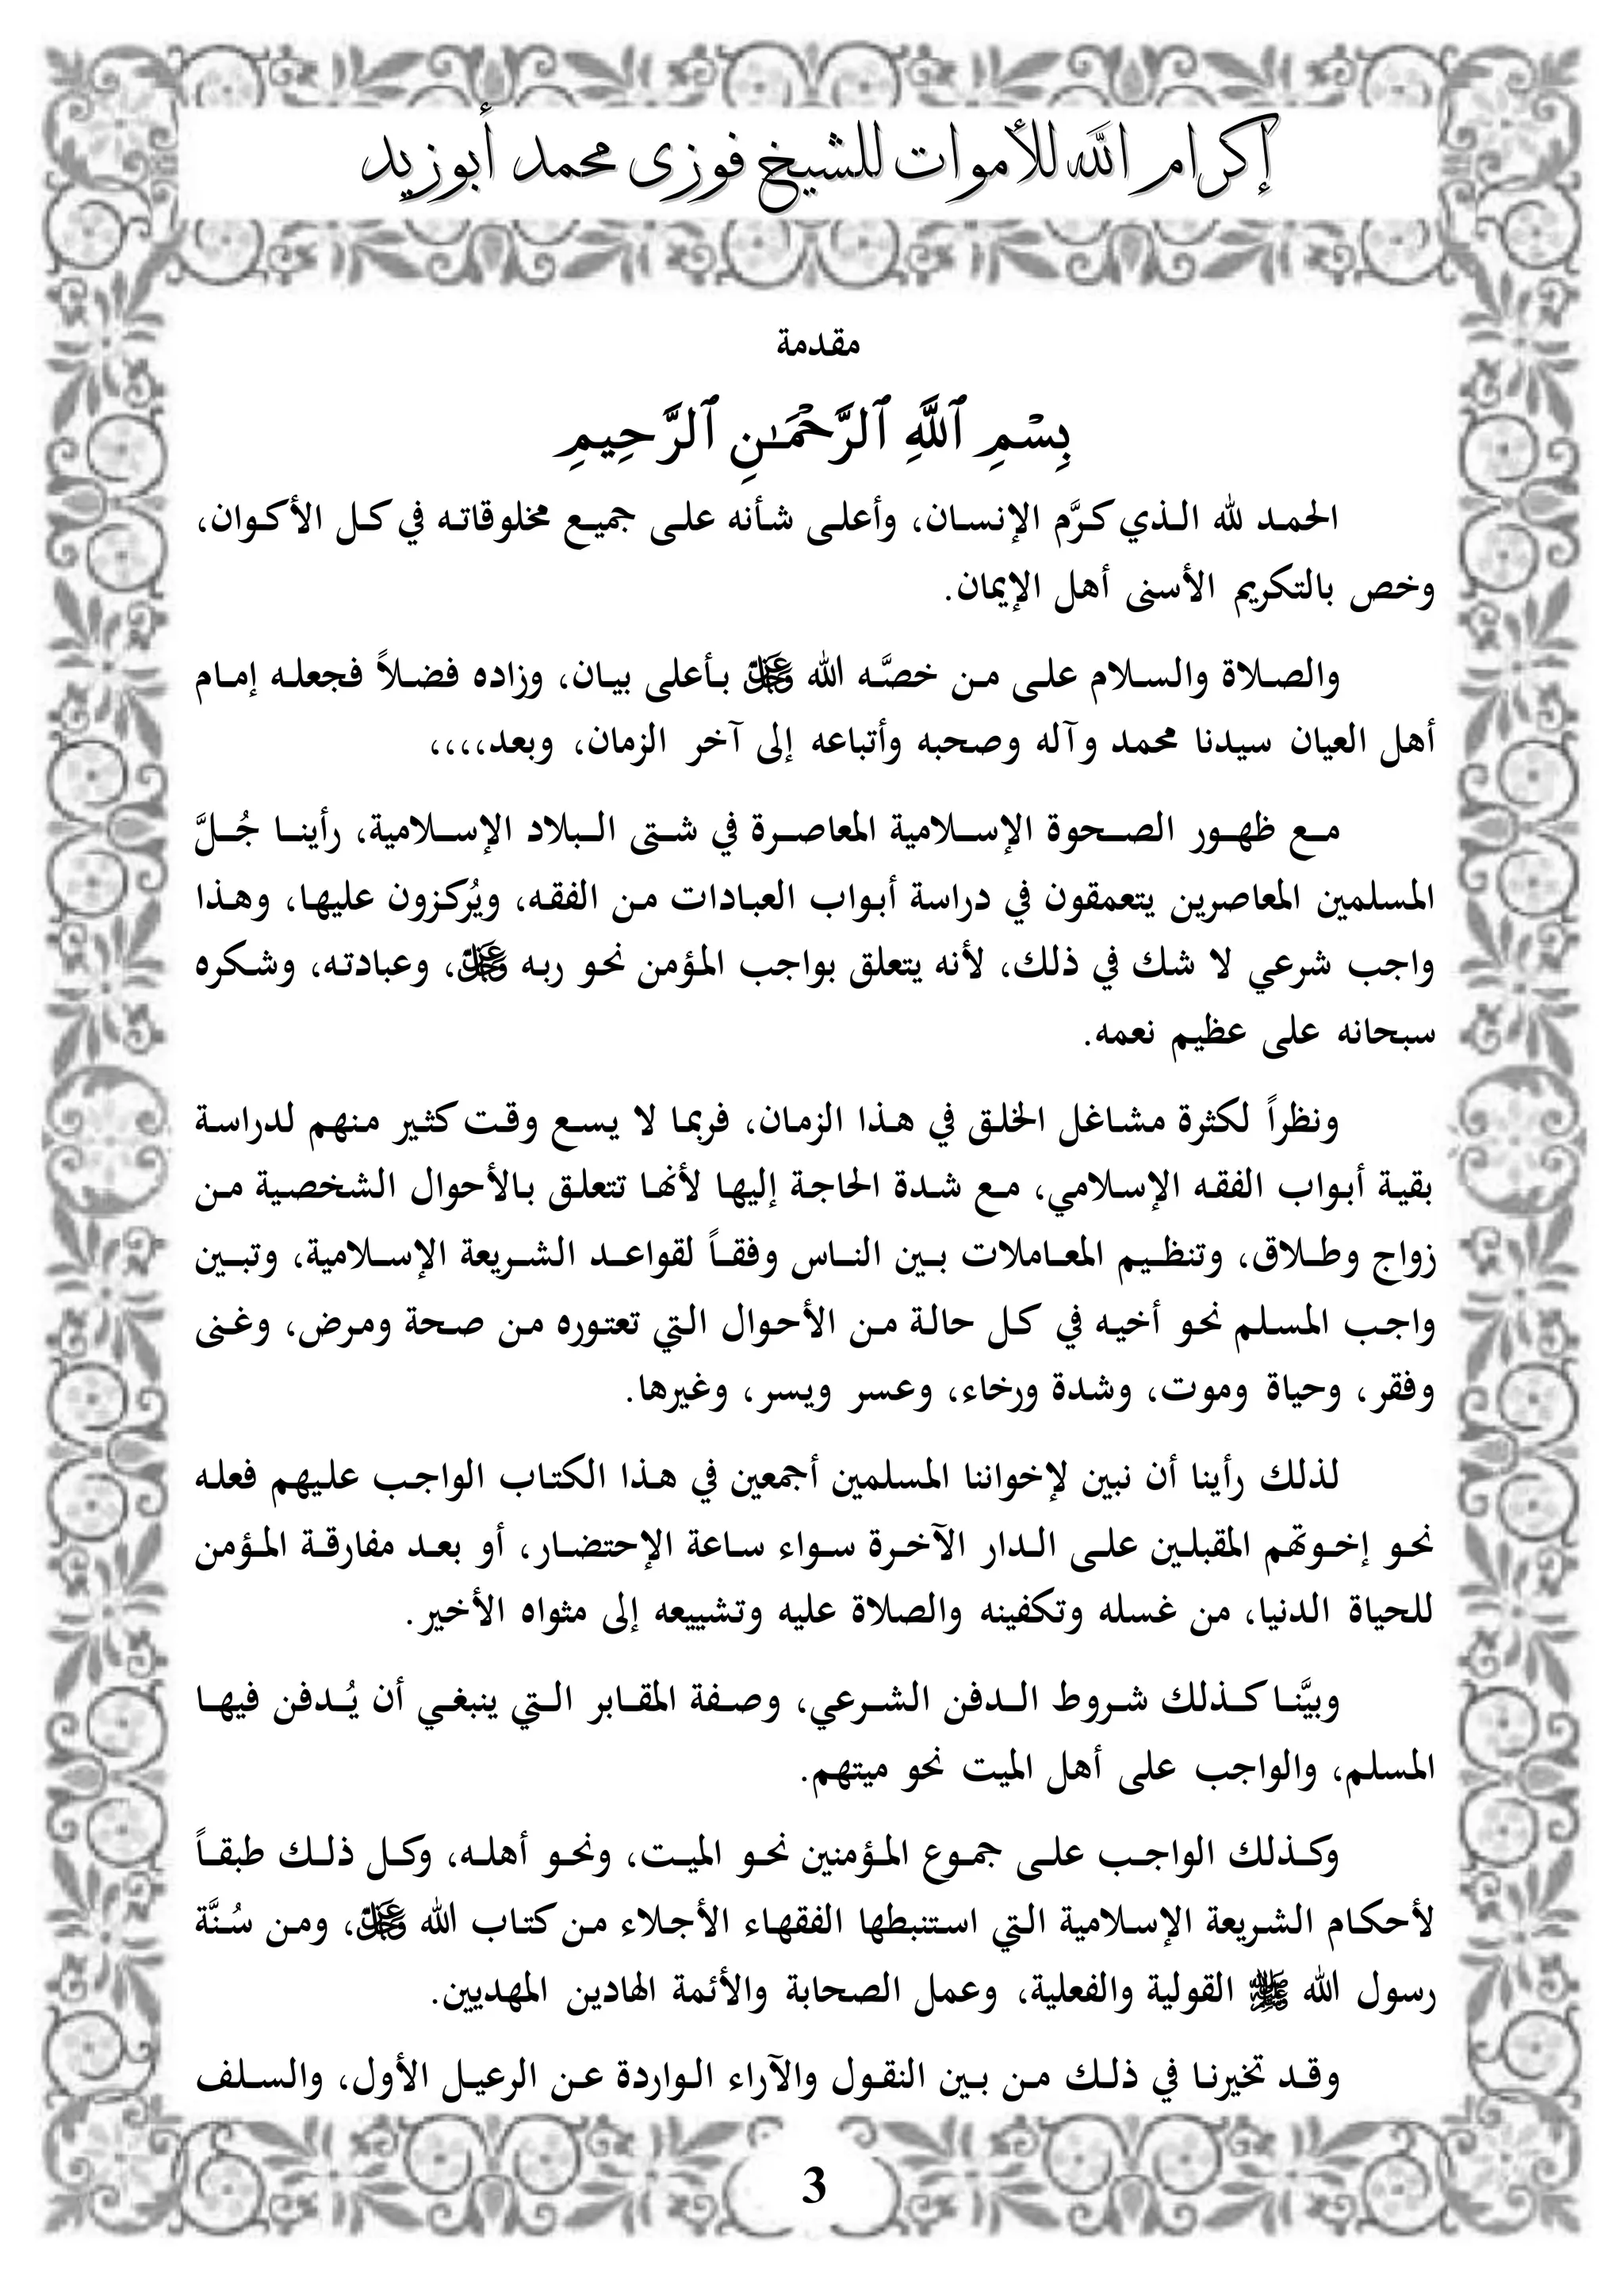 إكرام الله للأموات للشيخ فوزى محمد أبوزيد
مقدمة
بِسْمِ ٱللَّهِ ٱلرَّحْمَـٰنِ ٱلرَّحِيمِ
الحمد لله الذي كرَّم الإنسان، وأعلى شأنه على جميع مخلوقاته في كل الأكوان،
وخص بالتكريم الأسنى أهل الإيمان.
والصلاة والسلام على من خصَّه الله عز وجل بأعلى بيان، وزاده فضلاً فجعله إمام
أهل العيان سيدنا محمد وآله وصحبه وأتباعه إلى آخر الزمان، وبعد،،،،
مع ظهور الصحوة الإسلامية المعاصرة في شتى البلاد الإسلامية، رأينا جُلَّ
المسلمين المعاصرين يتعمقون في دراسة أبواب العبادات من الفقه، ويُركزون عليها، وهذا
واجب شرعي لا شك في ذلك، لأنه يتعلق بواجب المؤمن نحو ربه عز وجل، وعبادته، وشكره
سبحانه على عظيم نعمه.
ونظراً لكثرة مشاغل الخلق في هذا الزمان، فربما لا يسع وقت كثير منهم لدراسة
بقية أبواب الفقه الإسلامي، مع شدة الحاجة إليها لأنها تتعلق بالأحوال الشخصية من
زواج وطلاق، وتنظيم المعاملات بين الناس وفقاً لقواعد الشريعة الإسلامية، وتبين
واجب المسلم نحو أخيه في كل حالة من الأحوال التي تعتوره من صحة ومرض، وغنى
وفقر، وحياة وموت، وشدة ورخاء، وعسر ويسر، وغيرها.
لذلك رأينا أن نبين لإخواننا المسلمين أجمعين في هذا الكتاب الواجب عليهم فعله
نحو إخوتهم المقبلين على الدار الآخرة سواء ساعة الإحتضار، أو بعد مفارقة المؤمن
للحياة الدنيا، من غسله وتكفينه والصلاة عليه وتشييعه إلى مثواه الأخير.
وبيَّنا كذلك شروط الدفن الشرعي، وصفة المقابر التي ينبغي أن يُدفن فيها
المسلم، والواجب على أهل الميت نحو ميتهم.
وكذلك الواجب على جموع المؤمنين نحو الميت، ونحو أهله، وكل ذلك طبقاً
لأحكام الشريعة الإسلامية التي استنبطها الفقهاء الأجلاء من كتاب الله عز وجل، ومن سُنَّة
رسول الله ﷺ القولية والفعلية، وعمل الصحابة والأئمة الهادين المهديين.
وقد تخيرنا في ذلك من بين النقول والآراء الواردة عن الرعيل الأول، والسلف
3